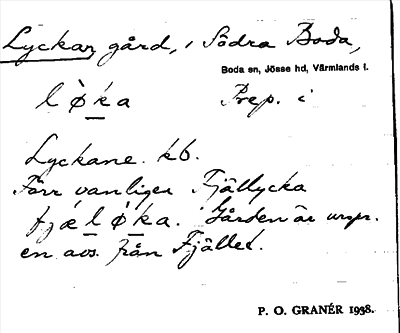 Lyckan, gård, i Södra Boda,
Boda sn, Jösse hd, Värmlands l.
l ø̀ k a Prep. i
Lyckane. kb.
Förr vanligen Fjällycka
fjæ l ø̀ k a. Gården är urspr.
en avs. från Fjället.
P. O. GRANÉR 1938.